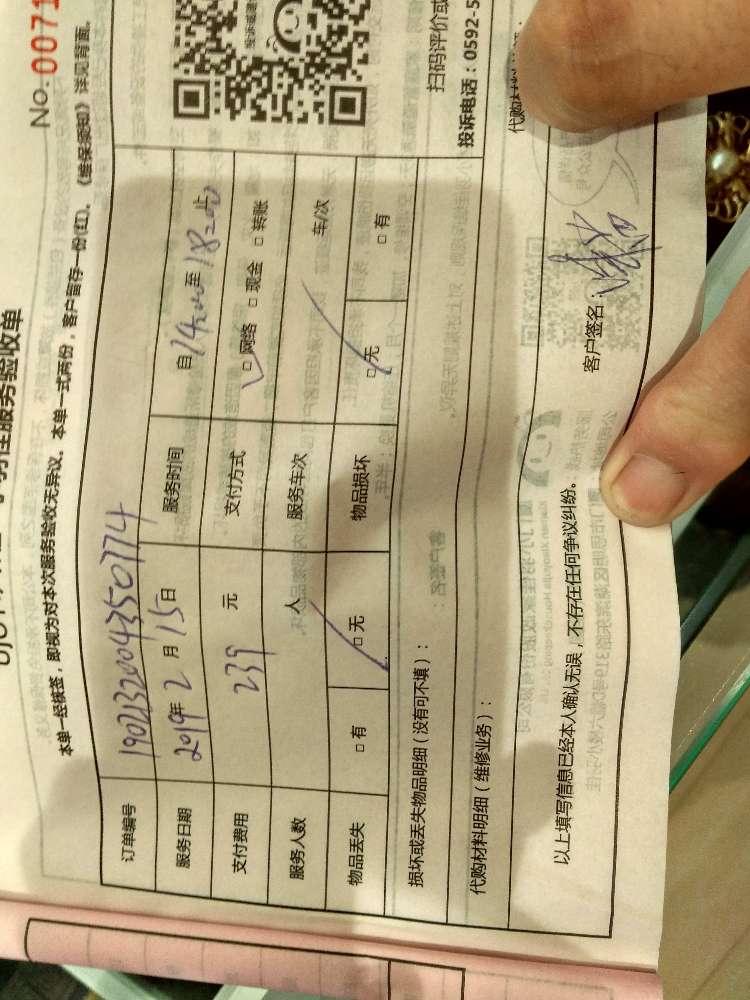 No: 0071
服务验收单
本单一经核签，即视为对本次服务验收无异议。本单一式两份，客户留存一份(红)。《维保须知》详见背面。
订单编号 190213200435077 4
服务日期 2019年 2 月 15 日 服务时间 自 14:00 至 18:00 止
支付费用 239 元 支付方式 □ 网络 □ 现金 □ 转账
服务人数 人 服务车次 车/次
物品丢失 □ 有 □ 无 物品损坏 □ 无 □ 有
损坏或丢失物品明细（没有可不填）：
代购材料明细（维修业务）：
以上填写信息已经本人确认无误，不存在任何争议纠纷。
客户签名：
扫码评价或
投诉电话：0592-5